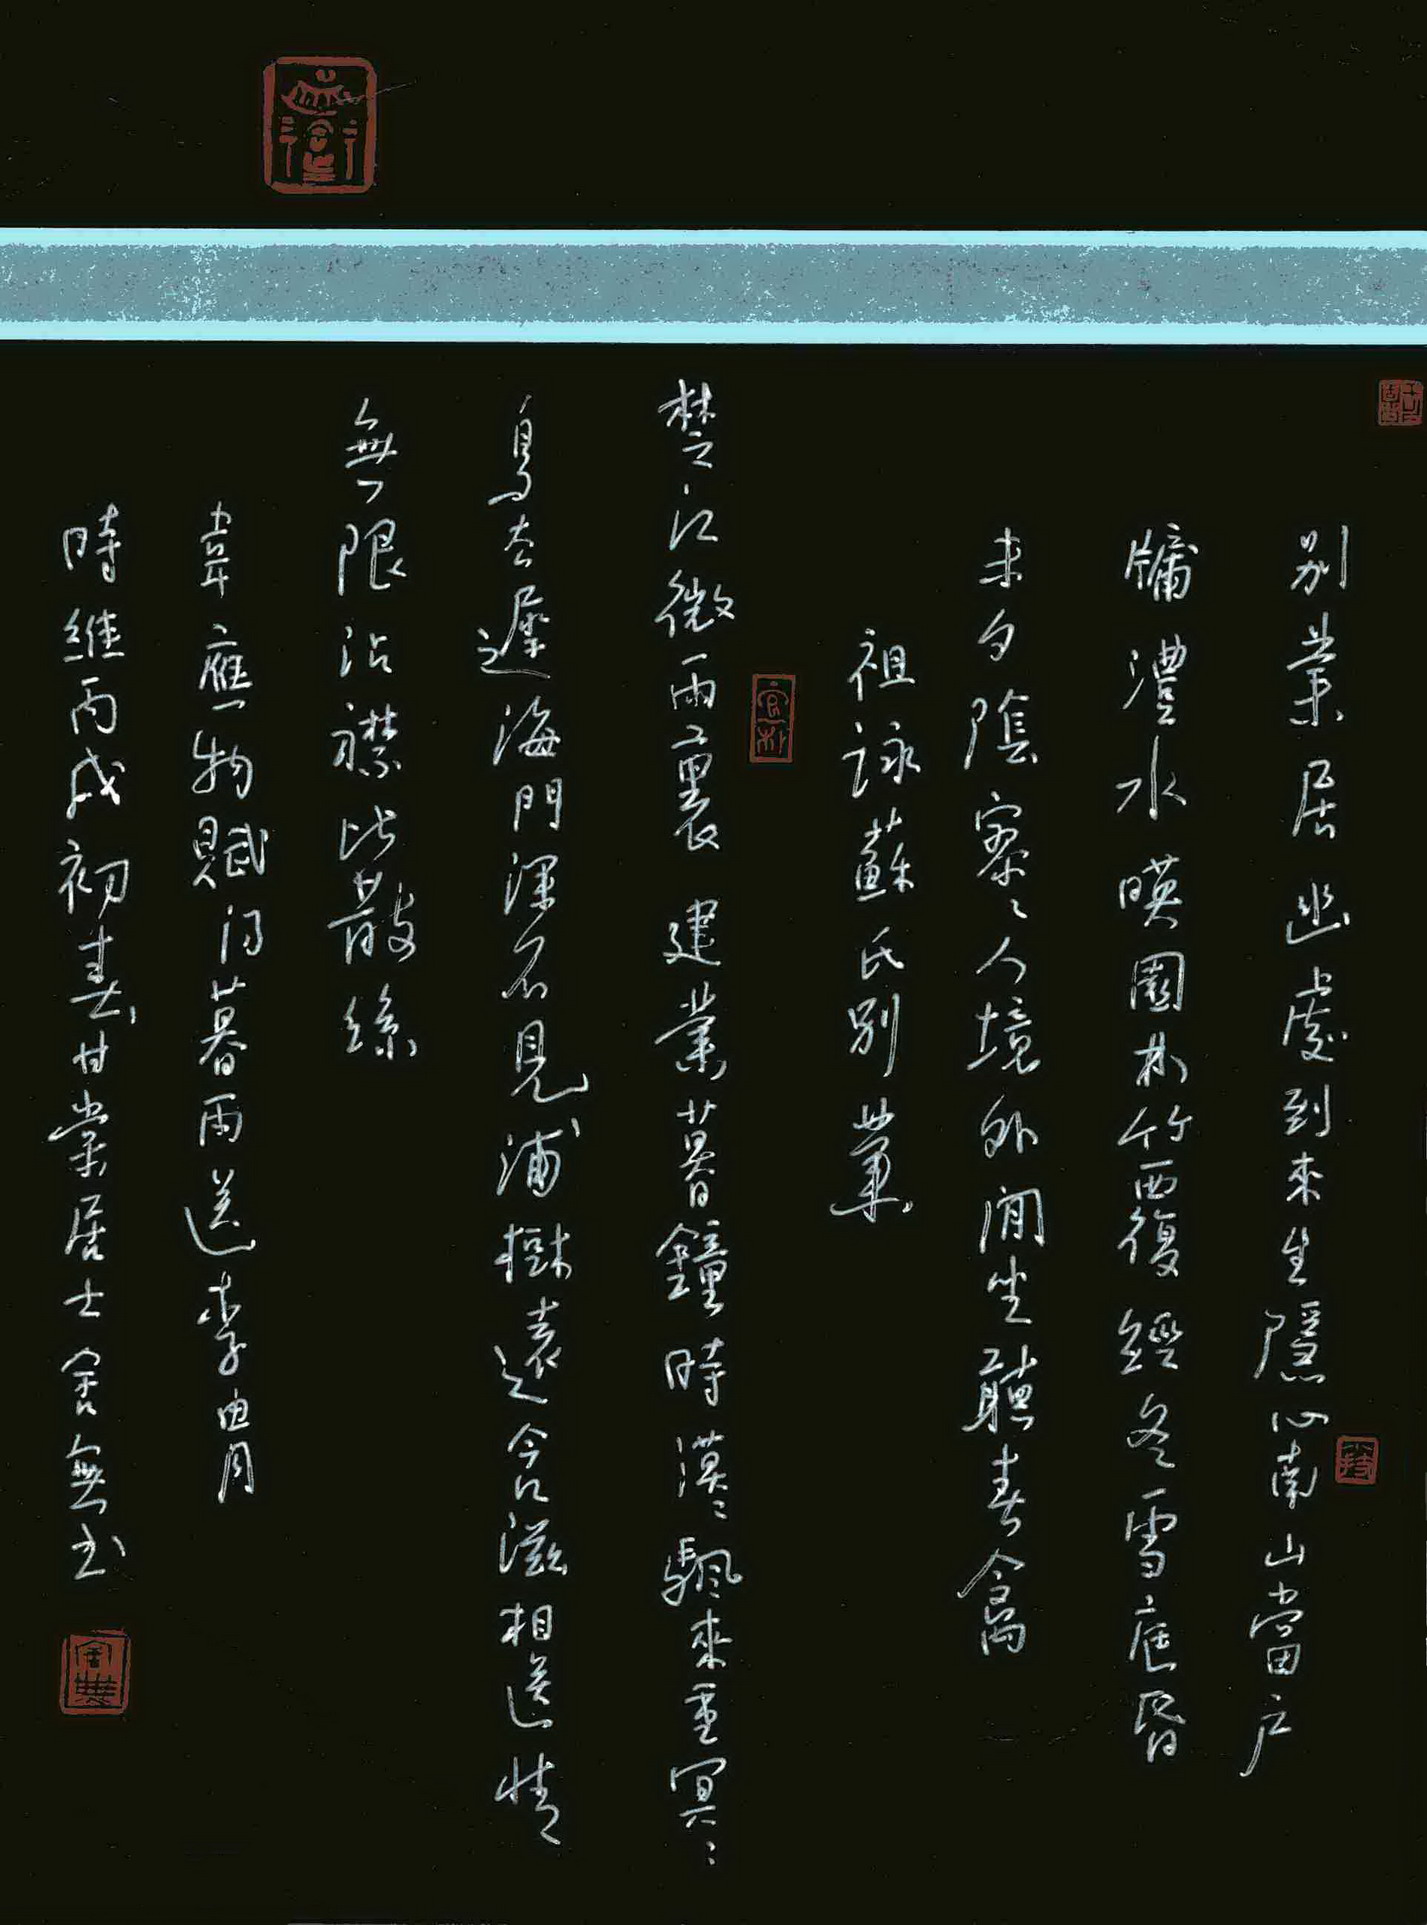 別業居幽處到來生隱心南山當户
牖灃水暎園林竹覆經冬雪庭昏
未夕陰寥〻人境外閒坐聽春禽
祖詠蘇氏別業
楚江微雨裏建業暮鐘時漠〻颿來重冥〻
鳥去遲海門深不見浦樹遠含滋相送情
無限沾襟比散絲
韋應物賦得暮雨送李曹
時維丙戌初春甘棠居士舍無書
舍無